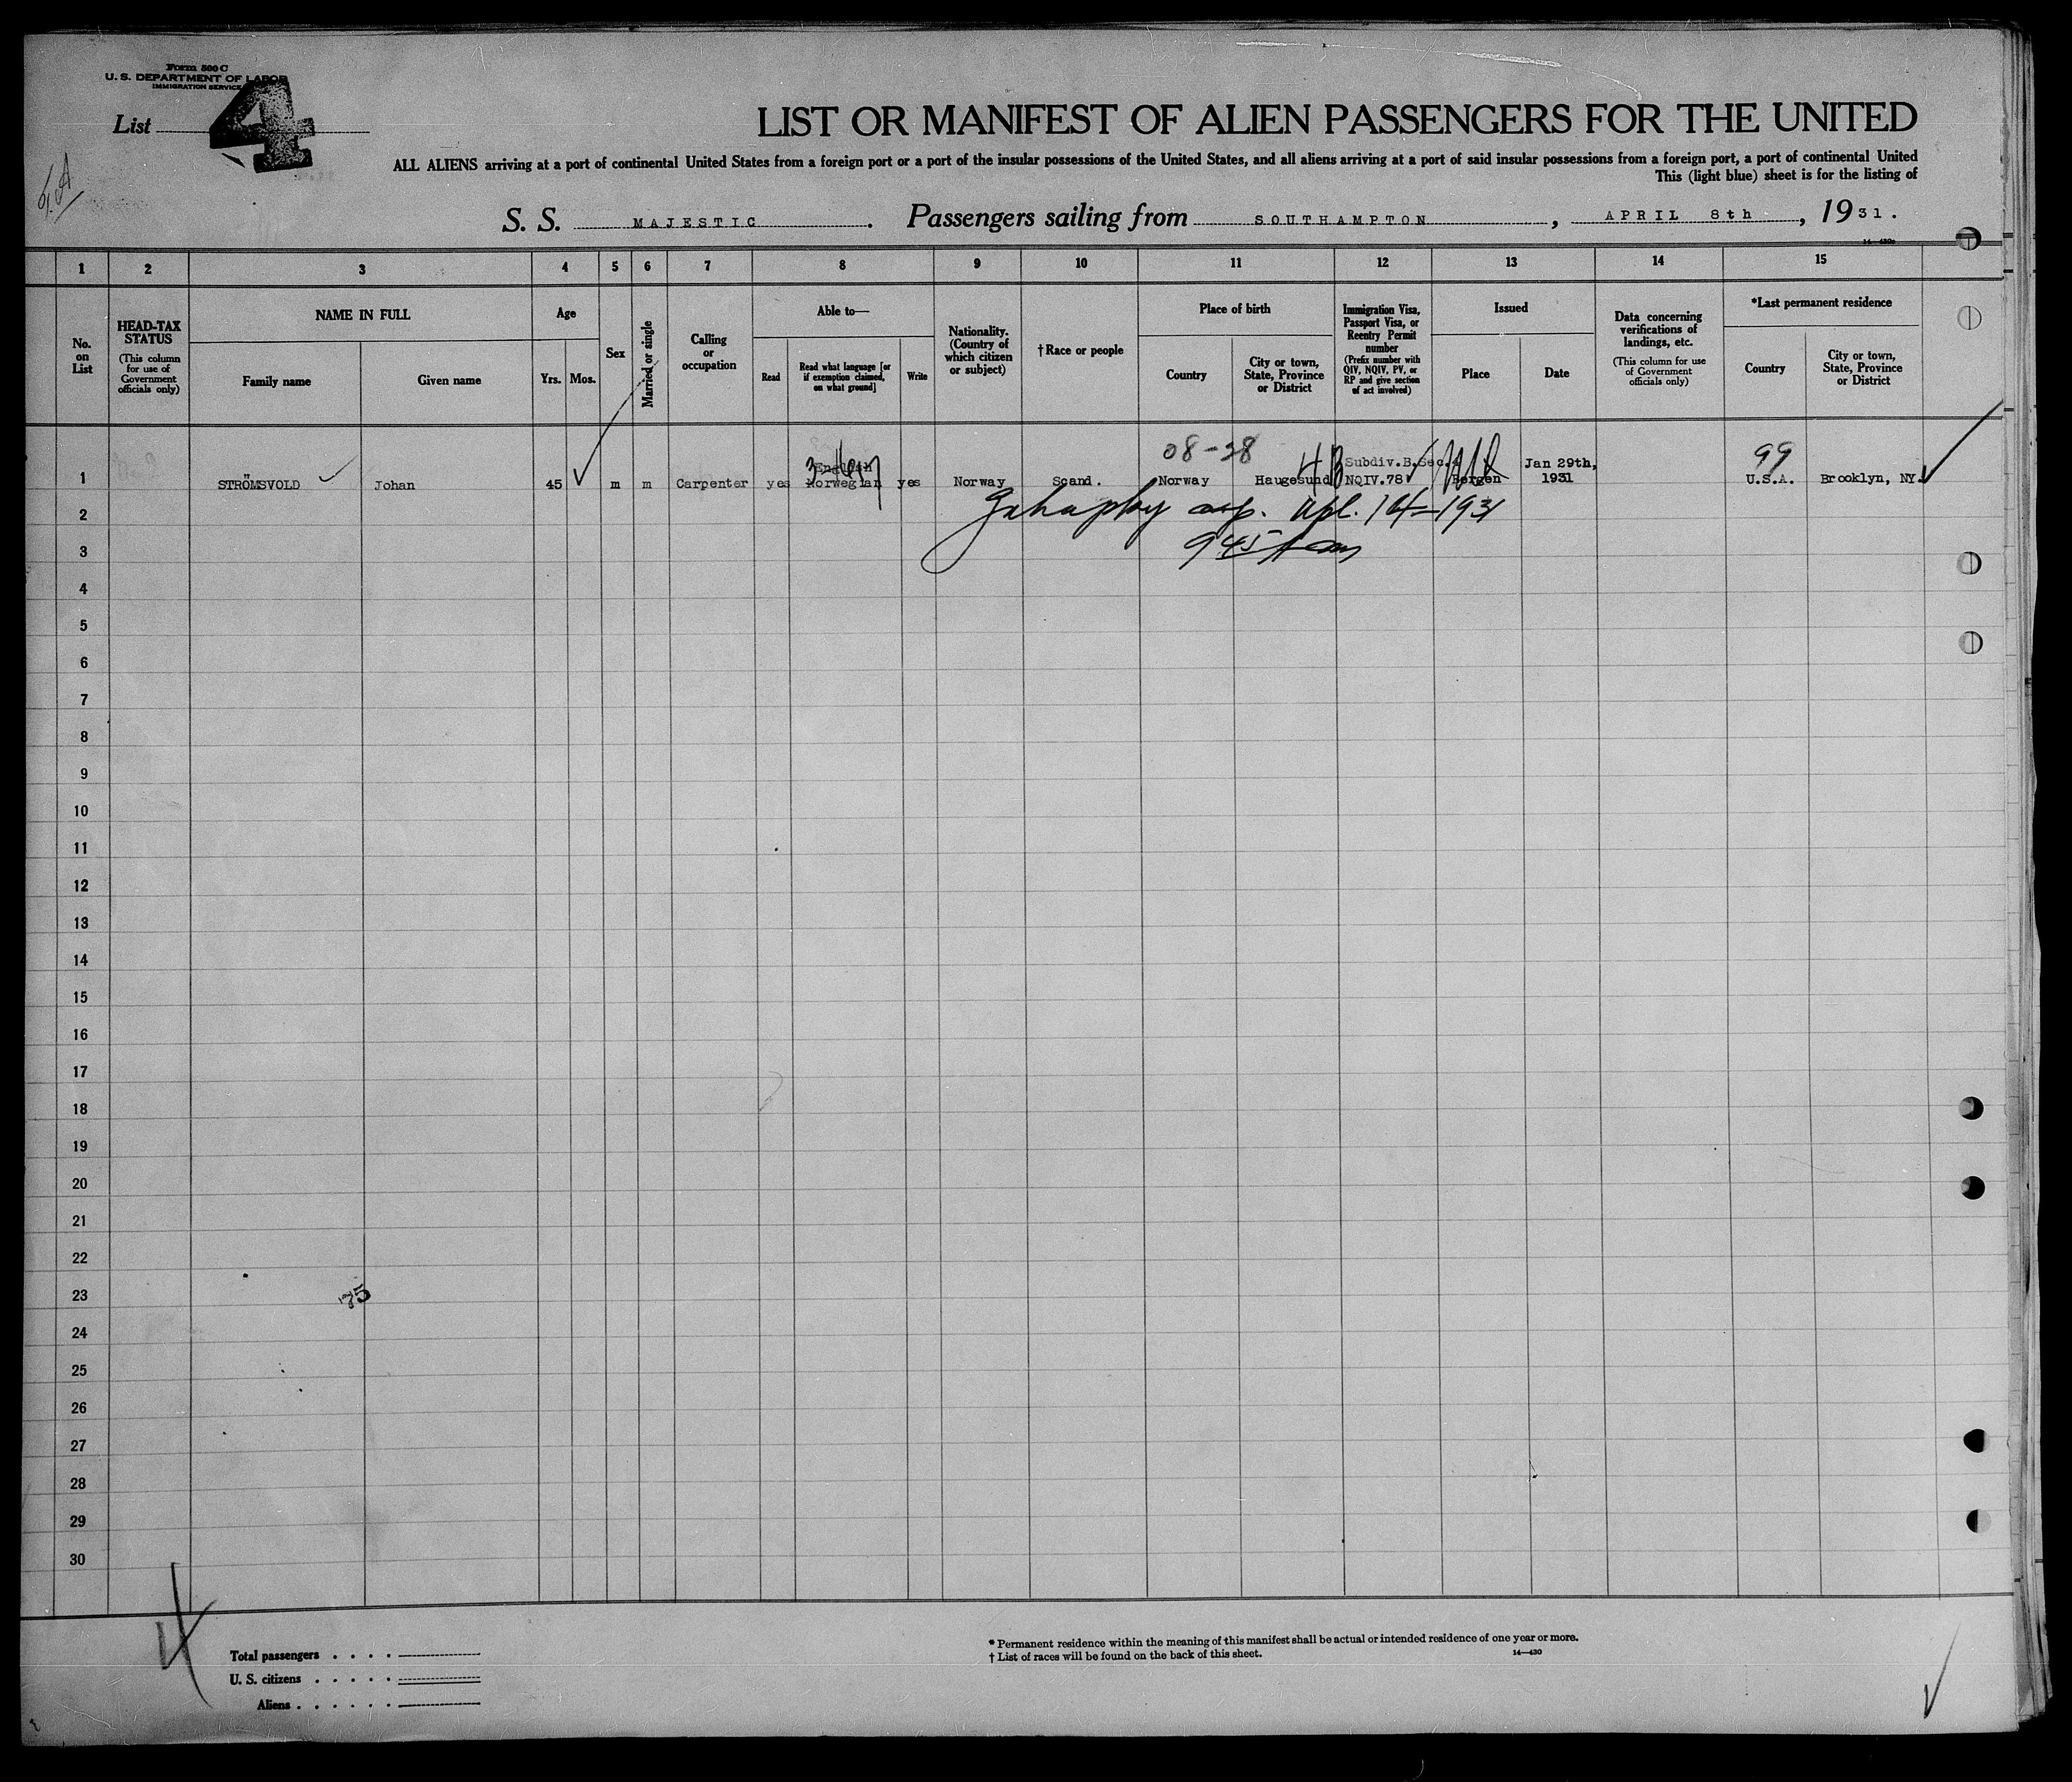 Form 500 C
U. S. DEPARTMENT OF LABOR
IMMIGRATION SERVICE
List 4
LIST OR MANIFEST OF ALIEN PASSENGERS FOR THE UNITED
ALL ALIENS arriving at a port of continental United States from a foreign port or a port of the insular possessions of the United States, and all aliens arriving at a port of said insular possessions from a foreign port, a port of continental United
This (light blue) sheet is for the listing of
S. S. MAJESTIC. Passengers sailing from SOUTHAMPTON, APRIL 8th, 1931.
1 2 3 4 5 6 7 8 9 10 11 12 13 14 15
No. on List
HEAD-TAX STATUS (This column for use of Government officials only)
NAME IN FULL
Family name Given name
Age
Yrs. Mos.
Sex
Married or single
Calling or occupation
Able to—
Read Read what language [or if exemption claimed, on what ground] Write
Nationality. (Country of which citizen or subject)
†Race or people
Place of birth
Country City or town, State, Province or District
Immigration Visa, Passport Visa, or Reentry Permit number (Prefix number with QIV, NQIV, PV, or RP and give section of act involved)
Issued
Place Date
Data concerning verifications of landings, etc. (This column for use of Government officials only)
*Last permanent residence
Country City or town, State, Province or District
08-28 99
English Subdiv.B,Sec.4 Jan 29th,
1 STRÖMSVOLD Johan 45 m m Carpenter yes Norwegian yes Norway Scand. Norway Haugesund NQIV.78 Bergen 1931 U.S.A. Brooklyn, NY.
2 Apl. 14-1931
3 945 Am
4
5
6
7
8
9
10
11
12
13
14
15
16
17
18
19
20
21
22
23
75
24
25
26
27
28
29
30
Total passengers
U. S. citizens
Aliens
* Permanent residence within the meaning of this manifest shall be actual or intended residence of one year or more.
† List of races will be found on the back of this sheet.
14—430